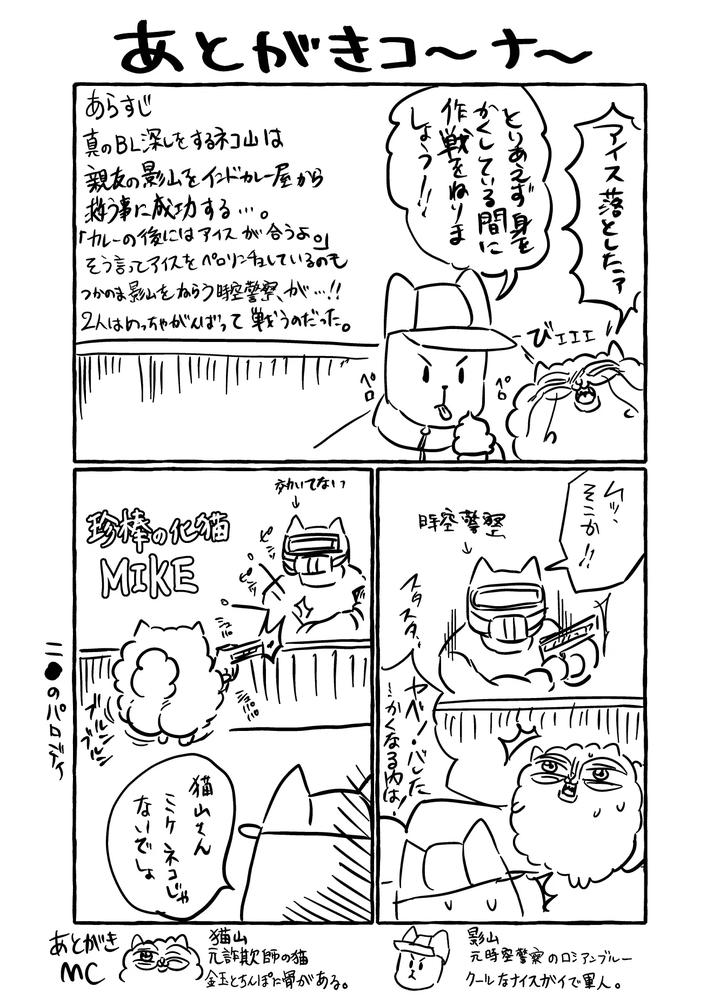 あとがきコ〜ナ〜
アイス落としたァ
とりあえず身を
かくしている間に
作戦をねりま
しょう!!
あらすじ
真のBL探しをするネコ山は
親友の影山をインドカレー屋から
救う事に成功する…。
「カレーの後にはアイスが合うよ。」
そう言ってアイスをペロリンチョしているのも
つかのま影山をねらう時空警察、が…!!
2人はめっちゃがんばって戦うのだった。
びェェェ
ペロ
ペロ
ムッ、
そこか!!
時空警察
スタスタ
ヤベッ・バレた
…かくなる内は!
効いてないっ
珍棒の化猫
MIKE
ピンッ
ピンッ
ブルッ
ブルッ
猫山さん
ミケネコじゃ
ないでしょ
二●のパロディ
あとがき
MC
猫山
元詐欺師の猫
金玉とちんぽに骨がある。
影山
元時空警察のロシアンブルー
クールなナイスガイで軍人。